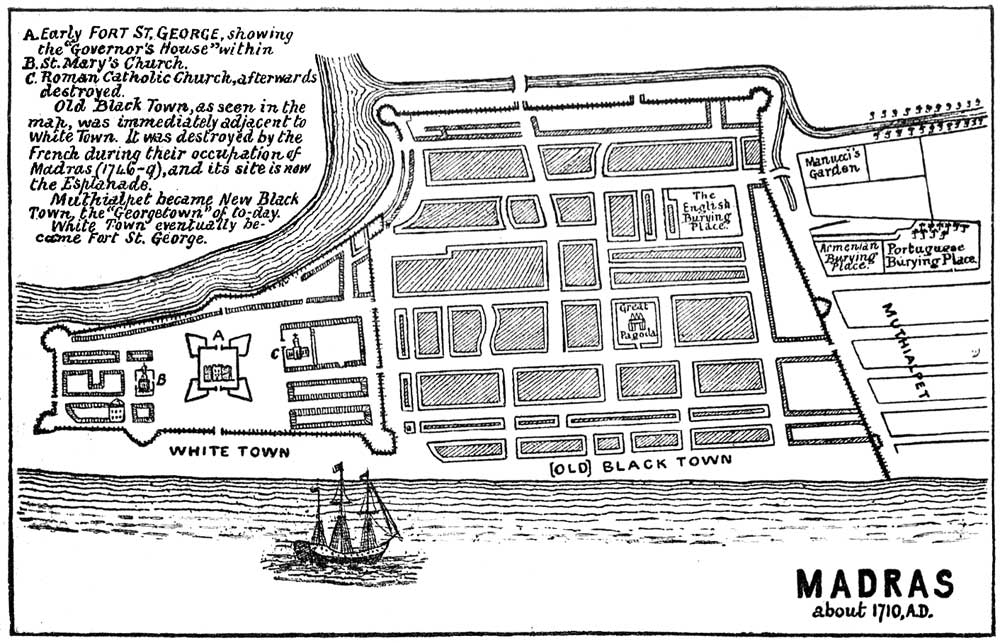 A. Early FORT ST. GEORGE, showing
the "Governor's House" within
B. St. Mary's Church.
C. Roman Catholic Church, afterwards
destroyed.
Old Black Town, as seen in the
map, was immediately adjacent to
White Town. It was destroyed by the
French during their occupation of
Madras (1746-9), and its site is now
the Esplanade.
Muthialpet became New Black
Town, the "Georgetown" of to-day.
White Town eventually be-
came Fort St. George.
Manucci's
Garden
The
English
Burying
Place.
Armenian
Burying
Place.
Portuguese
Burying Place.
Great
Pagoda
MUTHIALPET
A
B
C
WHITE TOWN
[OLD] BLACK TOWN
MADRAS
about 1710, A.D.